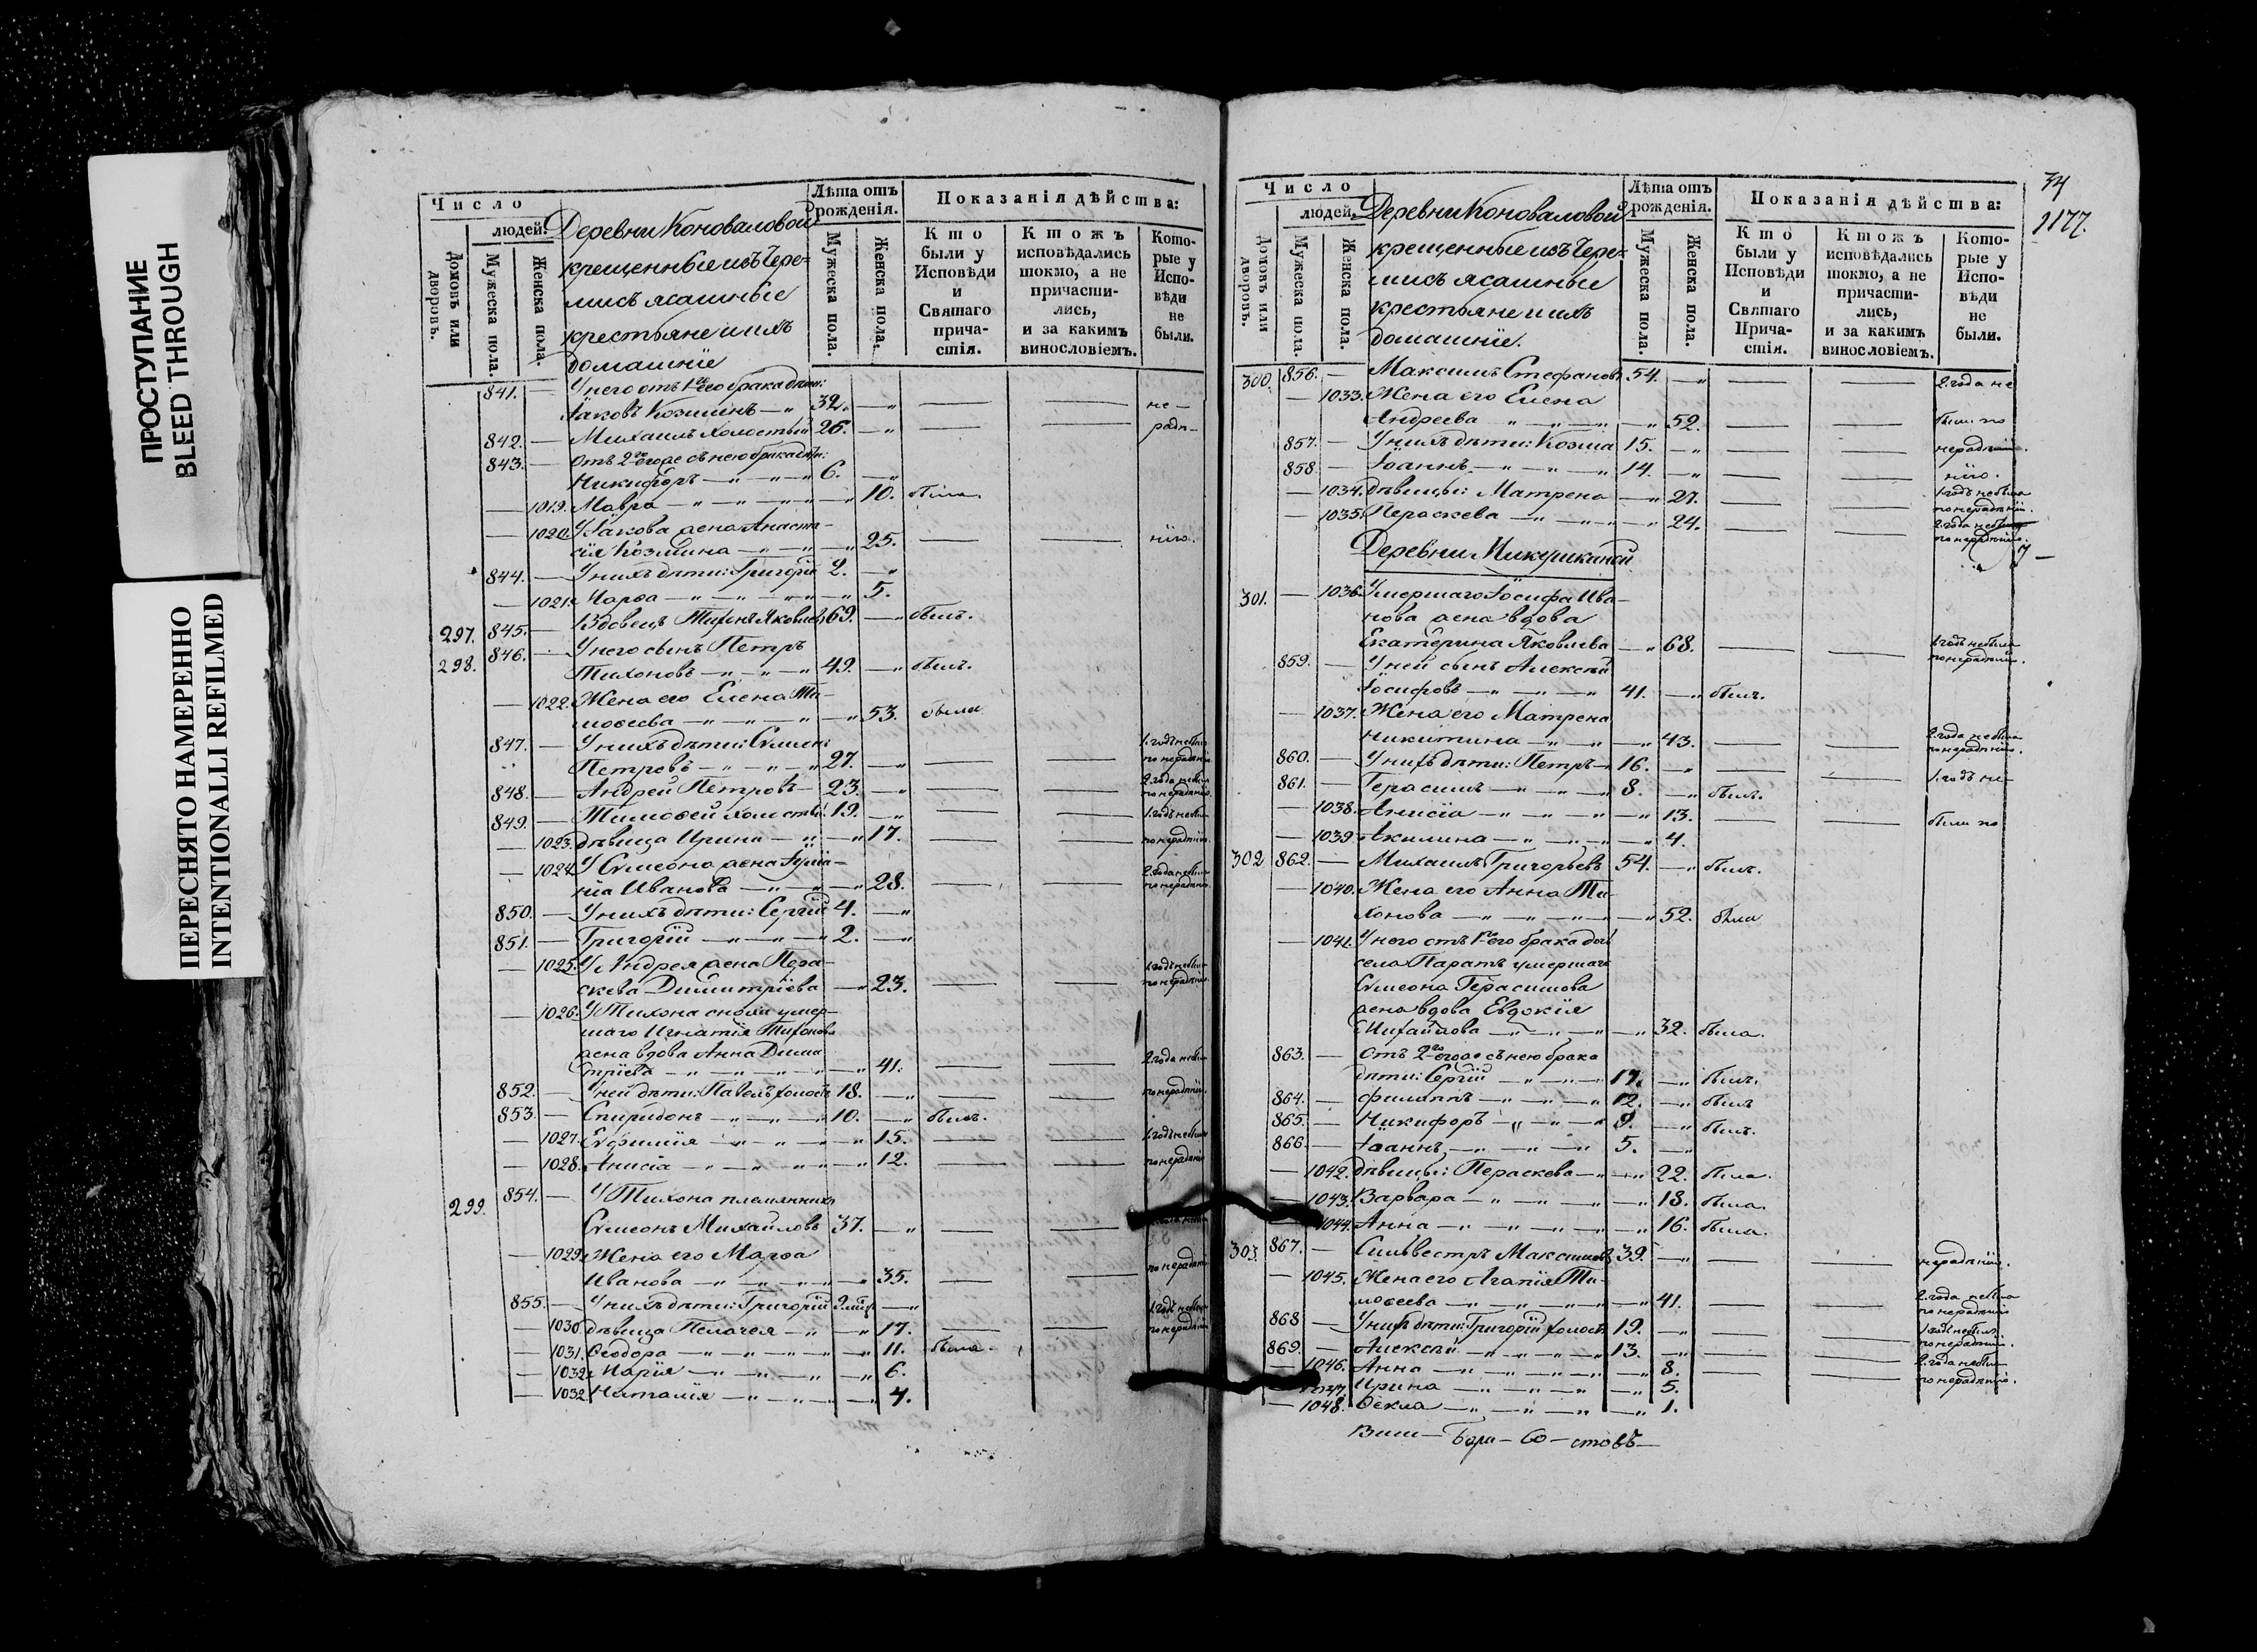 ПРОСТУПАНИЕ
BLEED THROUGH
ПЕРЕСНЯТО НАМЕРЕННО
INTENTIONALLI REFILMED
Число
людей.
Домовъ или дворовъ.
Мужеска пола.
Женска пола.
Деревни Коноваловой
крещенные изъ Чере-
мисъ ясашные
крестьяне и ихъ
домашніе
Лѣта отъ
рожденія.
Мужеска пола.
Женска пола.
Показанія дѣйства:
Кто
были у
Исповѣди
и
Святаго
прича-
стія.
Ктожъ
исповѣдались
токмо, а не
причасти-
лись,
и за какимъ
винословіемъ.
Кото-
рые у
Испо-
вѣди
не
были.
841. — У него отъ 1го его брака дѣти:
Іаковъ Козминъ — 32. — не-
842. — Михаилъ холостый 26. — радѣ-
843. — Отъ 2го его съ нею брака дѣти:
Никифоръ — 6. —
— 1019. Мавра — 10. была.
— 1020. У Іакова жена Анаста-
сія Козмина — 25. нію.
844. — У нихъ дѣти: Григорій 2. —
— 1021. Марѳа — 5.
297. 845. — Вдовецъ Тихонъ Яковлевъ 69. — былъ.
298. 846. — У него сынъ Петръ
Тихоновъ — 49. — былъ.
— 1022. Жена его Елена Ти-
моѳеева — 53. была
847. — У нихъ дѣти: Сѵмеонъ 1. годъ не былъ
Петровъ — 27. — по нерадѣнію
848. — Андрей Петровъ — 23. — 2. года не былъ по нерадѣнію.
849. — Тимоѳей холостый 19. — 1. годъ не былъ
— 1023. дѣвица Ирина — 17. по нерадѣнію.
— 1024. У Сѵмеона жена Іулиа-
нія Иванова — 28. 2. года не была по нерадѣнію.
850. — У нихъ дѣти: Сергій 4. —
851. — Григорій — 2. —
— 1025. У Андрея жена Пера-
скева Димитріева — 23. 1. годъ не была по нерадѣнію.
— 1026. У Тихона сноха умер-
шаго Игнатія Тихонова
жена вдова Анна Дими
тріева — 41. 2. года не была
852. — У ней дѣти: Павелъ холостъ 18. — по нерадѣнію.
853. — Спиридонъ — 10. — былъ.
— 1027. Евфимія — 15. 1. годъ не была
— 1028. Анисіа — 12. по нерадѣнію
299. 854. — У Тихона племянникъ
Сѵмеонъ Михайловъ 37. —
— 1029. Жена его Марѳа
Иванова — 35. по нерадѣнію
855. — У нихъ дѣти: Григорій —
— 1030. дѣвица Пелагея — 17. 1. годъ не была по нерадѣнію
— 1031. Ѳеодора — 11. была.
— 1032. Марія — 6.
— 1032. Наталія — 4.
34
1177.
Число
людей.
Домовъ или дворовъ.
Мужеска пола.
Женска пола.
Деревни Коноваловой
крещенные изъ Чере-
мисъ ясашные
крестьяне и ихъ
домашніе.
Лѣта отъ
рожденія.
Мужеска пола.
Женска пола.
Показанія дѣйства:
Кто
были у
Исповѣди
и
Святаго
Прича-
стія.
Ктожъ
исповѣдались
токмо, а не
причасти-
лись,
и за какимъ
винословіемъ.
Кото-
рые у
Испо-
вѣди
не
были.
300. 856. — Максимъ Стефановъ 54. — 2. года не
— 1033. Жена его Елена
Андреева — 52. были по
857. — У нихъ дѣти: Козма 15. — нерадѣнію.
858 — Іоаннъ — 14. — нію.
— 1034. дѣвицы: Матрена — 27. 1. годъ не была по нерадѣнію.
— 1035. Пераскева — 24. 2. года не была по нерадѣнію.
Деревни
301. — 1036. Умершаго Іосифа Ива-
нова жена вдова
Екатерина Яковлева — 68. 1. годъ не была по нерадѣнію.
859. — У ней сынъ Алексѣй
Іосифовъ — 41. — былъ.
— 1037. Жена его Матрена
Никитина — 43. 2. года не была по нерадѣнію.
860. — У нихъ дѣти: Петръ — 16. — 1. годъ не-
861. — Герасимъ — 8. — былъ.
— 1038. Анисіа — 13. были по
— 1039. Акилина — 4.
302 862. — Михаилъ Григорьевъ 54. — былъ.
— 1040. Жена его Анна Ти-
хонова — 52. была
— 1041. У него отъ 1го его брака дочь
села Паратъ умершаго
Сѵмеона Герасимова
жена вдова Евдокія
Михайлова — 32. была.
863. — Отъ 2го его съ нею брака
дѣти: Сергій — 17. — былъ.
864. — Филиппъ — 12. — былъ
865. — Никифоръ — 9. — былъ.
866. — Іоаннъ — 5. —
— 1042. дѣвицы: Пераскева — 22. была.
— 1043. Варвара — 18. была.
1044. Анна — 16. была.
303 867. — Сильвестръ Максимовъ 39. — нерадѣнію.
— 1045. Жена его Агапія Ти-
моѳеева — 41. 2. года не была по нерадѣнію
868 — У нихъ дѣти: Григорій холостъ 19. — 1. годъ не былъ по нерадѣнію.
869. — Алексѣй — 13. —
— 1046. Анна — 8. 2. года не бы- по нерадѣнію.
1047. Ирина — 5.
— 1048. Ѳекла — 1.